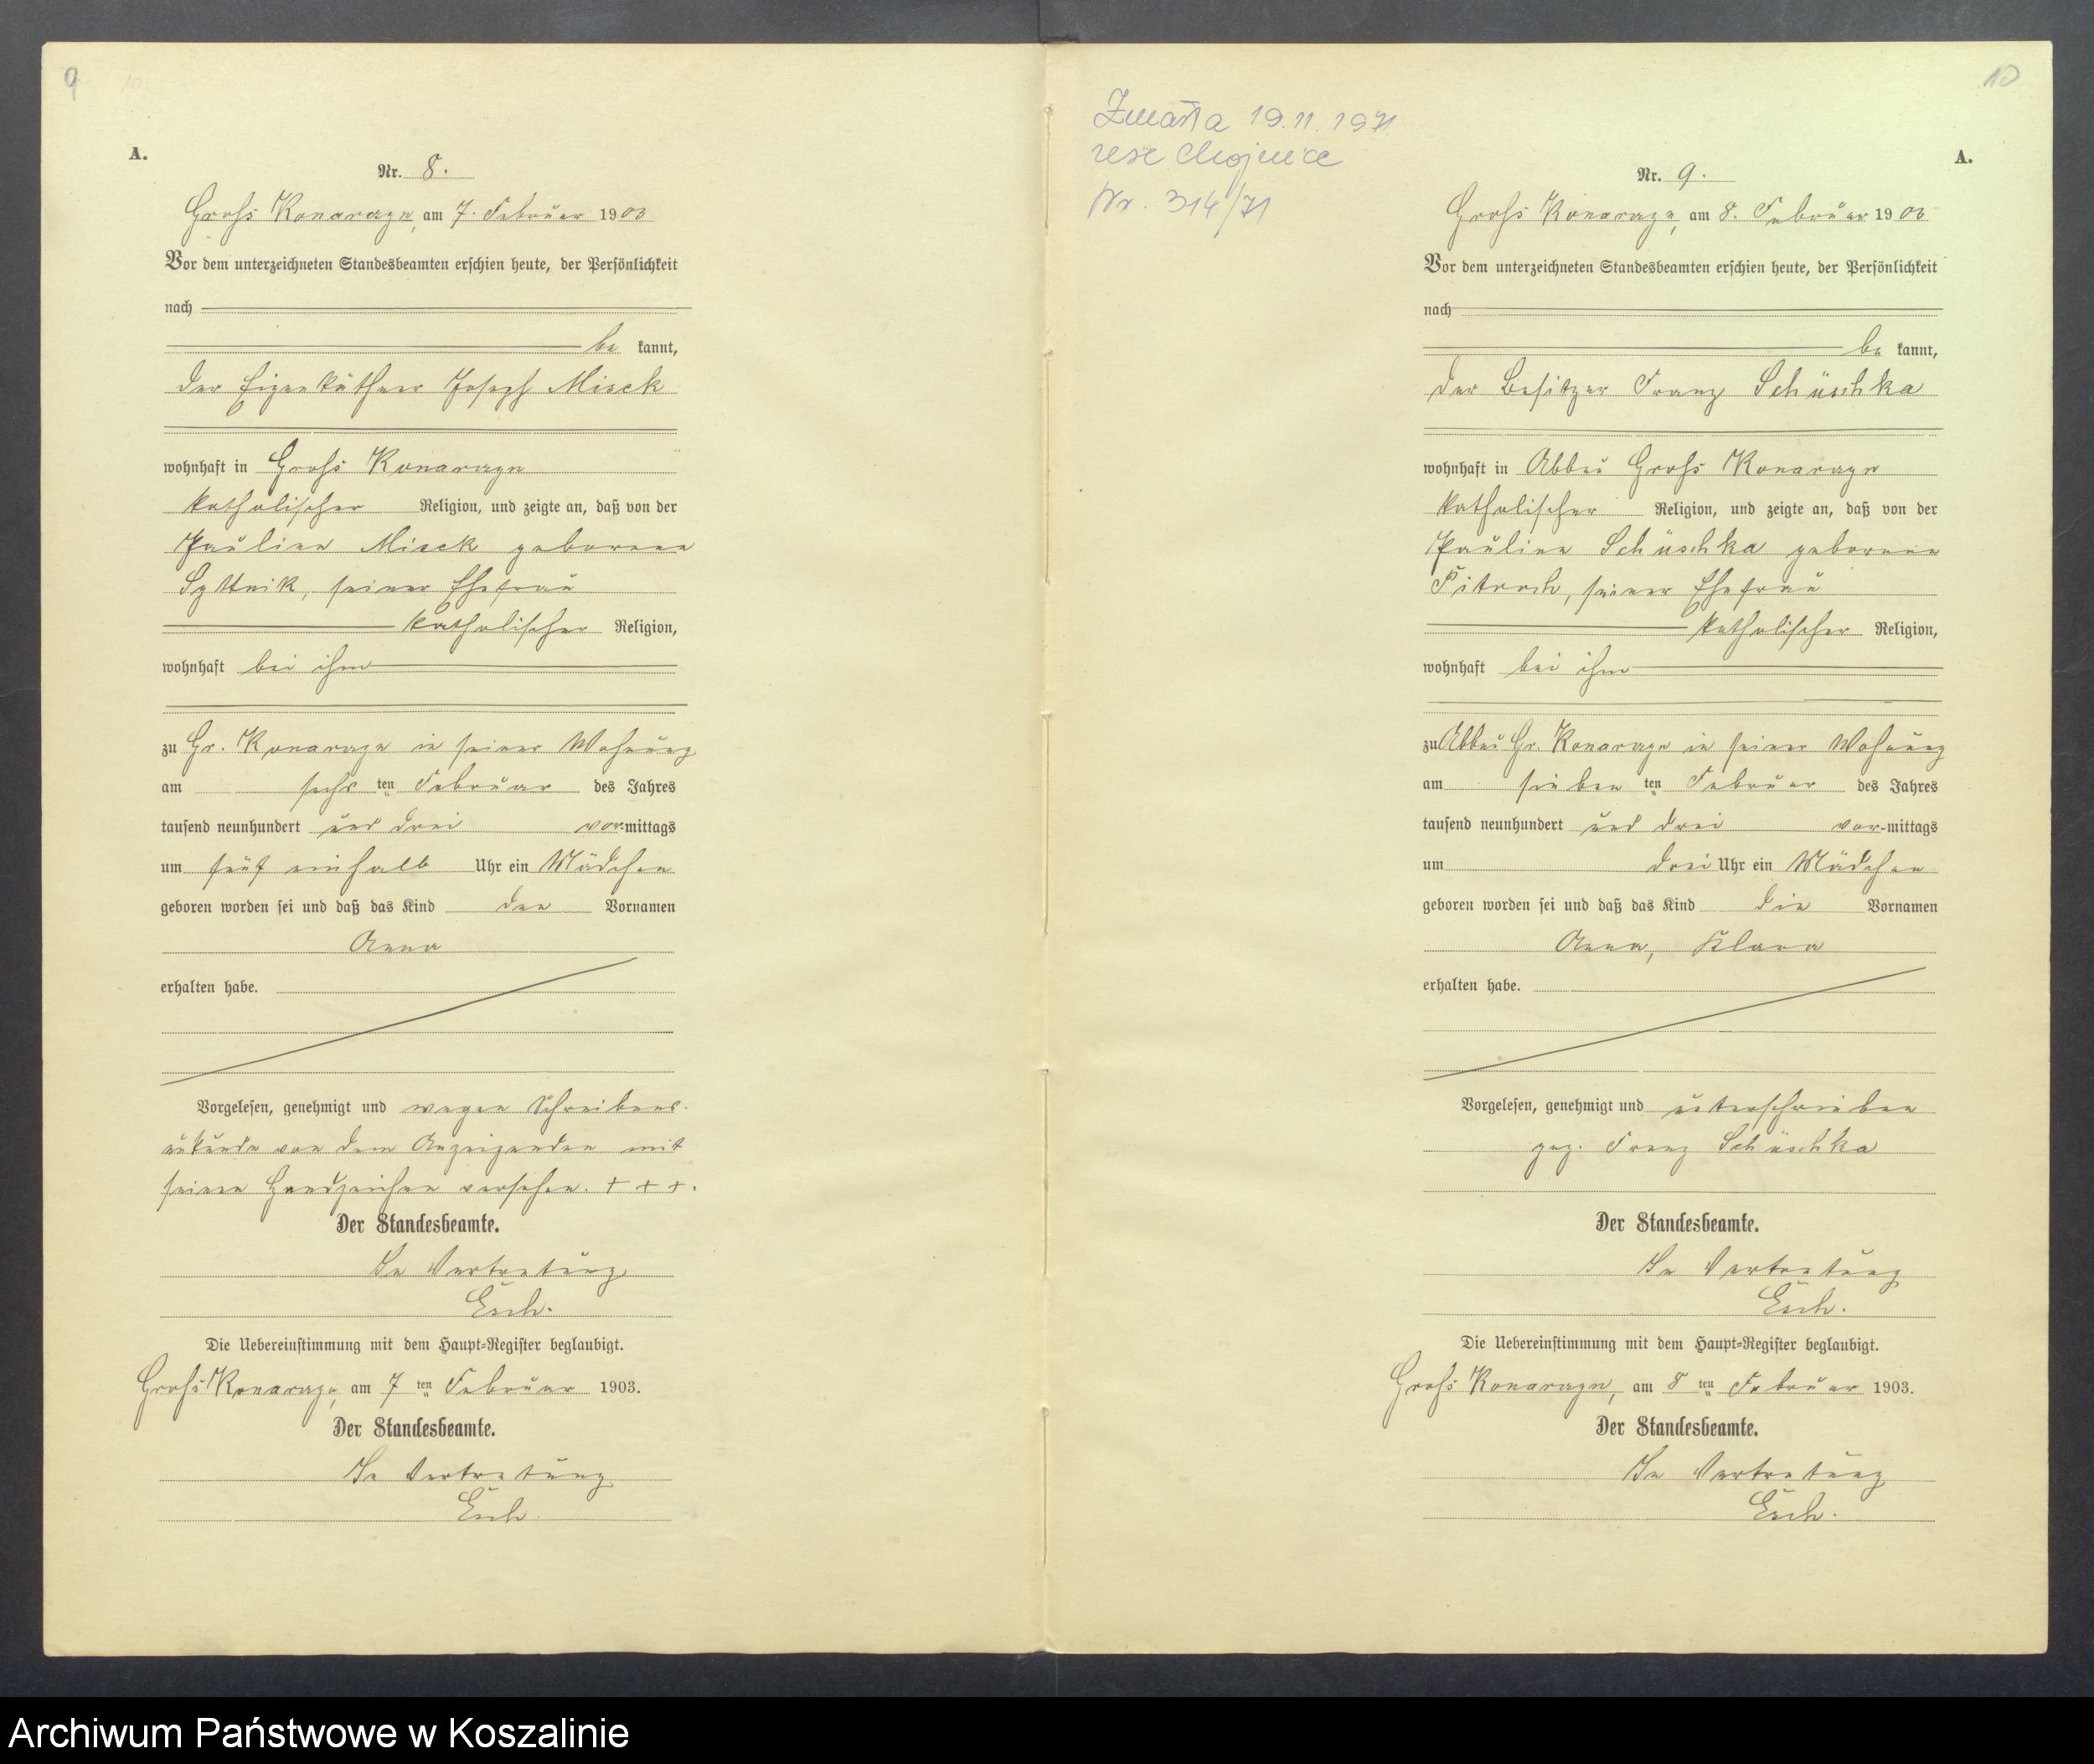 9
A.
Nr. 8.
Groß Konarczyn, am 7. Februar 1903
Vor dem unterzeichneten Standesbeamten erschien heute, der Persönlichkeit
nach
be kannt,
der Eigenkäthner Joseph Misck
wohnhaft in Groß Konarczyn
katholischer Religion, und zeigte an, daß von der
Pauline Misck geborene
seiner Ehefrau
katholischer Religion,
wohnhaft bei ihm
zu Gr. Konarczyn in seiner Wohnung
am sechs ten Februar des Jahres
tausend neunhundert und drei vormittags
um fünf einhalb Uhr ein Mädchen
geboren worden sei und daß das Kind den Vornamen
Anna
erhalten habe.
Vorgelesen, genehmigt und wegen Schreibens-
unkunde von dem Anzeigenden mit
seinen Handzeichen versehen. + + +.
Der Standesbeamte.
In Vertretung
Esch.
Die Uebereinstimmung mit dem Haupt-Register beglaubigt.
Groß Konarczyn, am 7 ten Februar 1903.
Der Standesbeamte.
In Vertretung
Esch.
10
Zmarła 19.11.1971
Chojnice
Nr. 314/71
A.
Nr. 9.
Groß Konarczyn, am 8. Februar 1903
Vor dem unterzeichneten Standesbeamten erschien heute, der Persönlichkeit
nach
be kannt,
der Besitzer Franz Schüschka
wohnhaft in Abbau Groß Konarczyn
katholischer Religion, und zeigte an, daß von der
Pauline Schüschka geborenen
seiner Ehefrau
katholischer Religion,
wohnhaft bei ihm
zu Abbau Gr. Konarczyn in seiner Wohnung
am sieben ten Februar des Jahres
tausend neunhundert und drei vor-mittags
um drei Uhr ein Mädchen
geboren worden sei und daß das Kind die Vornamen
Anna, Klara
erhalten habe.
Vorgelesen, genehmigt und unterschrieben
gez. Franz Schüschka
Der Standesbeamte.
In Vertretung
Esch.
Die Uebereinstimmung mit dem Haupt-Register beglaubigt.
Groß Konarczyn, am 8 ten Februar 1903.
Der Standesbeamte.
In Vertretung
Esch.
Archiwum Państwowe w Koszalinie